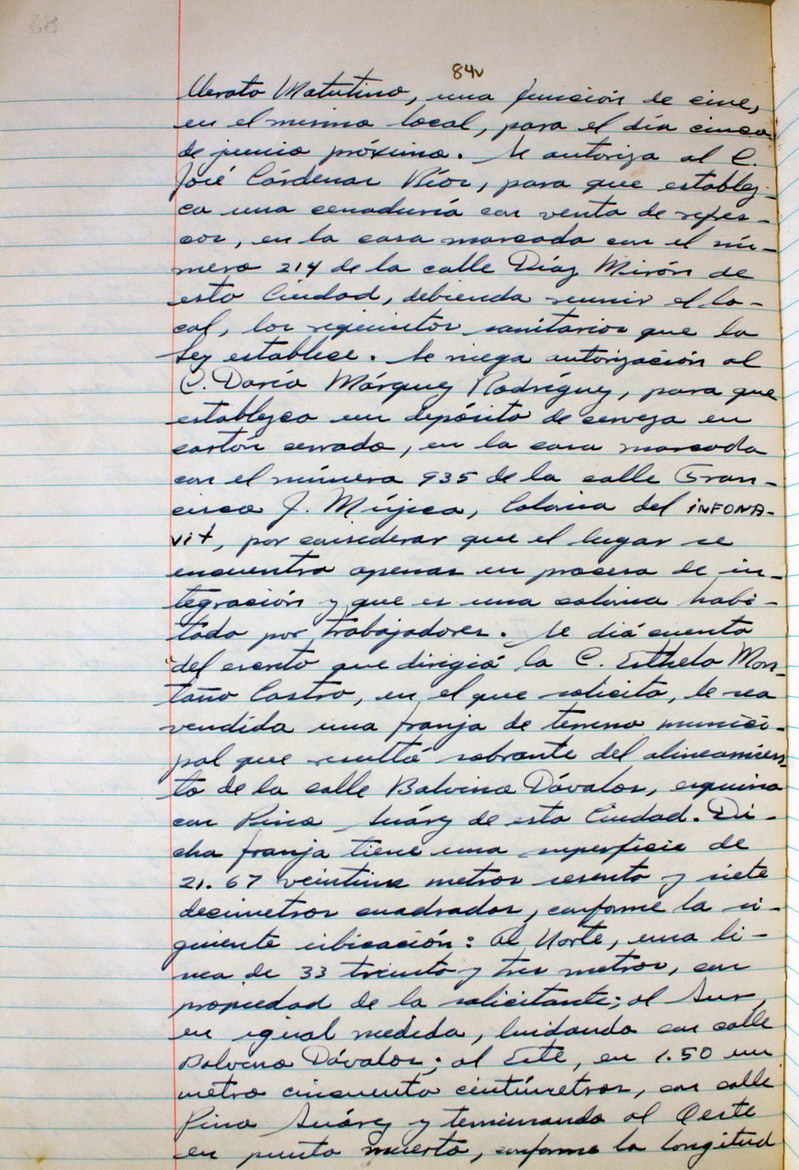 84v
Matutino, una función de cine,
en el mismo local, para el día cinco
de junio próximo. Se autoriza al C.
José Cárdenas Ríos, para que establez-
ca una cenaduría con venta de refres-
cos, en la casa marcada con el nú-
mero 214 de la calle Díaz Mirón de
esta Ciudad, debiendo reunir el lo-
cal, los requisitos sanitarios que la
Ley establece. Se niega autorización al
C. Darío Márquez Rodríguez, para que
establezca un depósito de cerveza en
cartón cerrado, en la casa marcada
con el número 935 de la calle Fran-
cisco J. Mújica, Colonia del INFONA-
vit, por considerar que el lugar se
encuentra apenas en proceso de in-
tegración y que es una colonia habi-
tada por trabajadores. Se dió cuenta
del escrito que dirigió la C. Esthela Mon-
taño Castro, en el que solicita, le sea
vendida una franja de terreno munici-
pal que resultó sobrante del alineamien-
to de la calle Balvino Dávalos, esquina
con Pino Suárez de esta Ciudad. Di-
cha franja tiene una superficie de
21.67 veintiun metros sesenta y siete
decimetros cuadrados, conforme la si-
guiente ubicación: Al Norte, una li-
nea de 33 treinta y tres metros, con
propiedad de la solicitante; al Sur,
en igual medida, lindando con calle
Balvino Dávalos; al Este, en 1.50 un
metro cincuenta centímetros, con calle
Pino Suárez y terminando al Oeste
en punto muerto, conforme la longitud